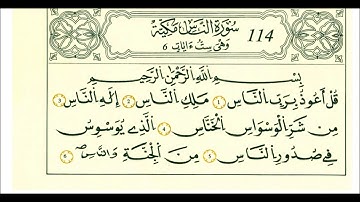 سُورَةُ النَّاسِ مَكِّيَّةٌ 114
وَهِيَ سِتُّ ءَايَاتٍ 6
بِسْمِ اللَّهِ الرَّحْمَٰنِ الرَّحِيمِ
قُلْ أَعُوذُ بِرَبِّ النَّاسِ ① مَلِكِ النَّاسِ ② إِلَٰهِ النَّاسِ ③
مِن شَرِّ الْوَسْوَاسِ الْخَنَّاسِ ④ الَّذِي يُوَسْوِسُ
فِي صُدُورِ النَّاسِ ⑤ مِنَ الْجِنَّةِ وَالنَّاسِ ⑥